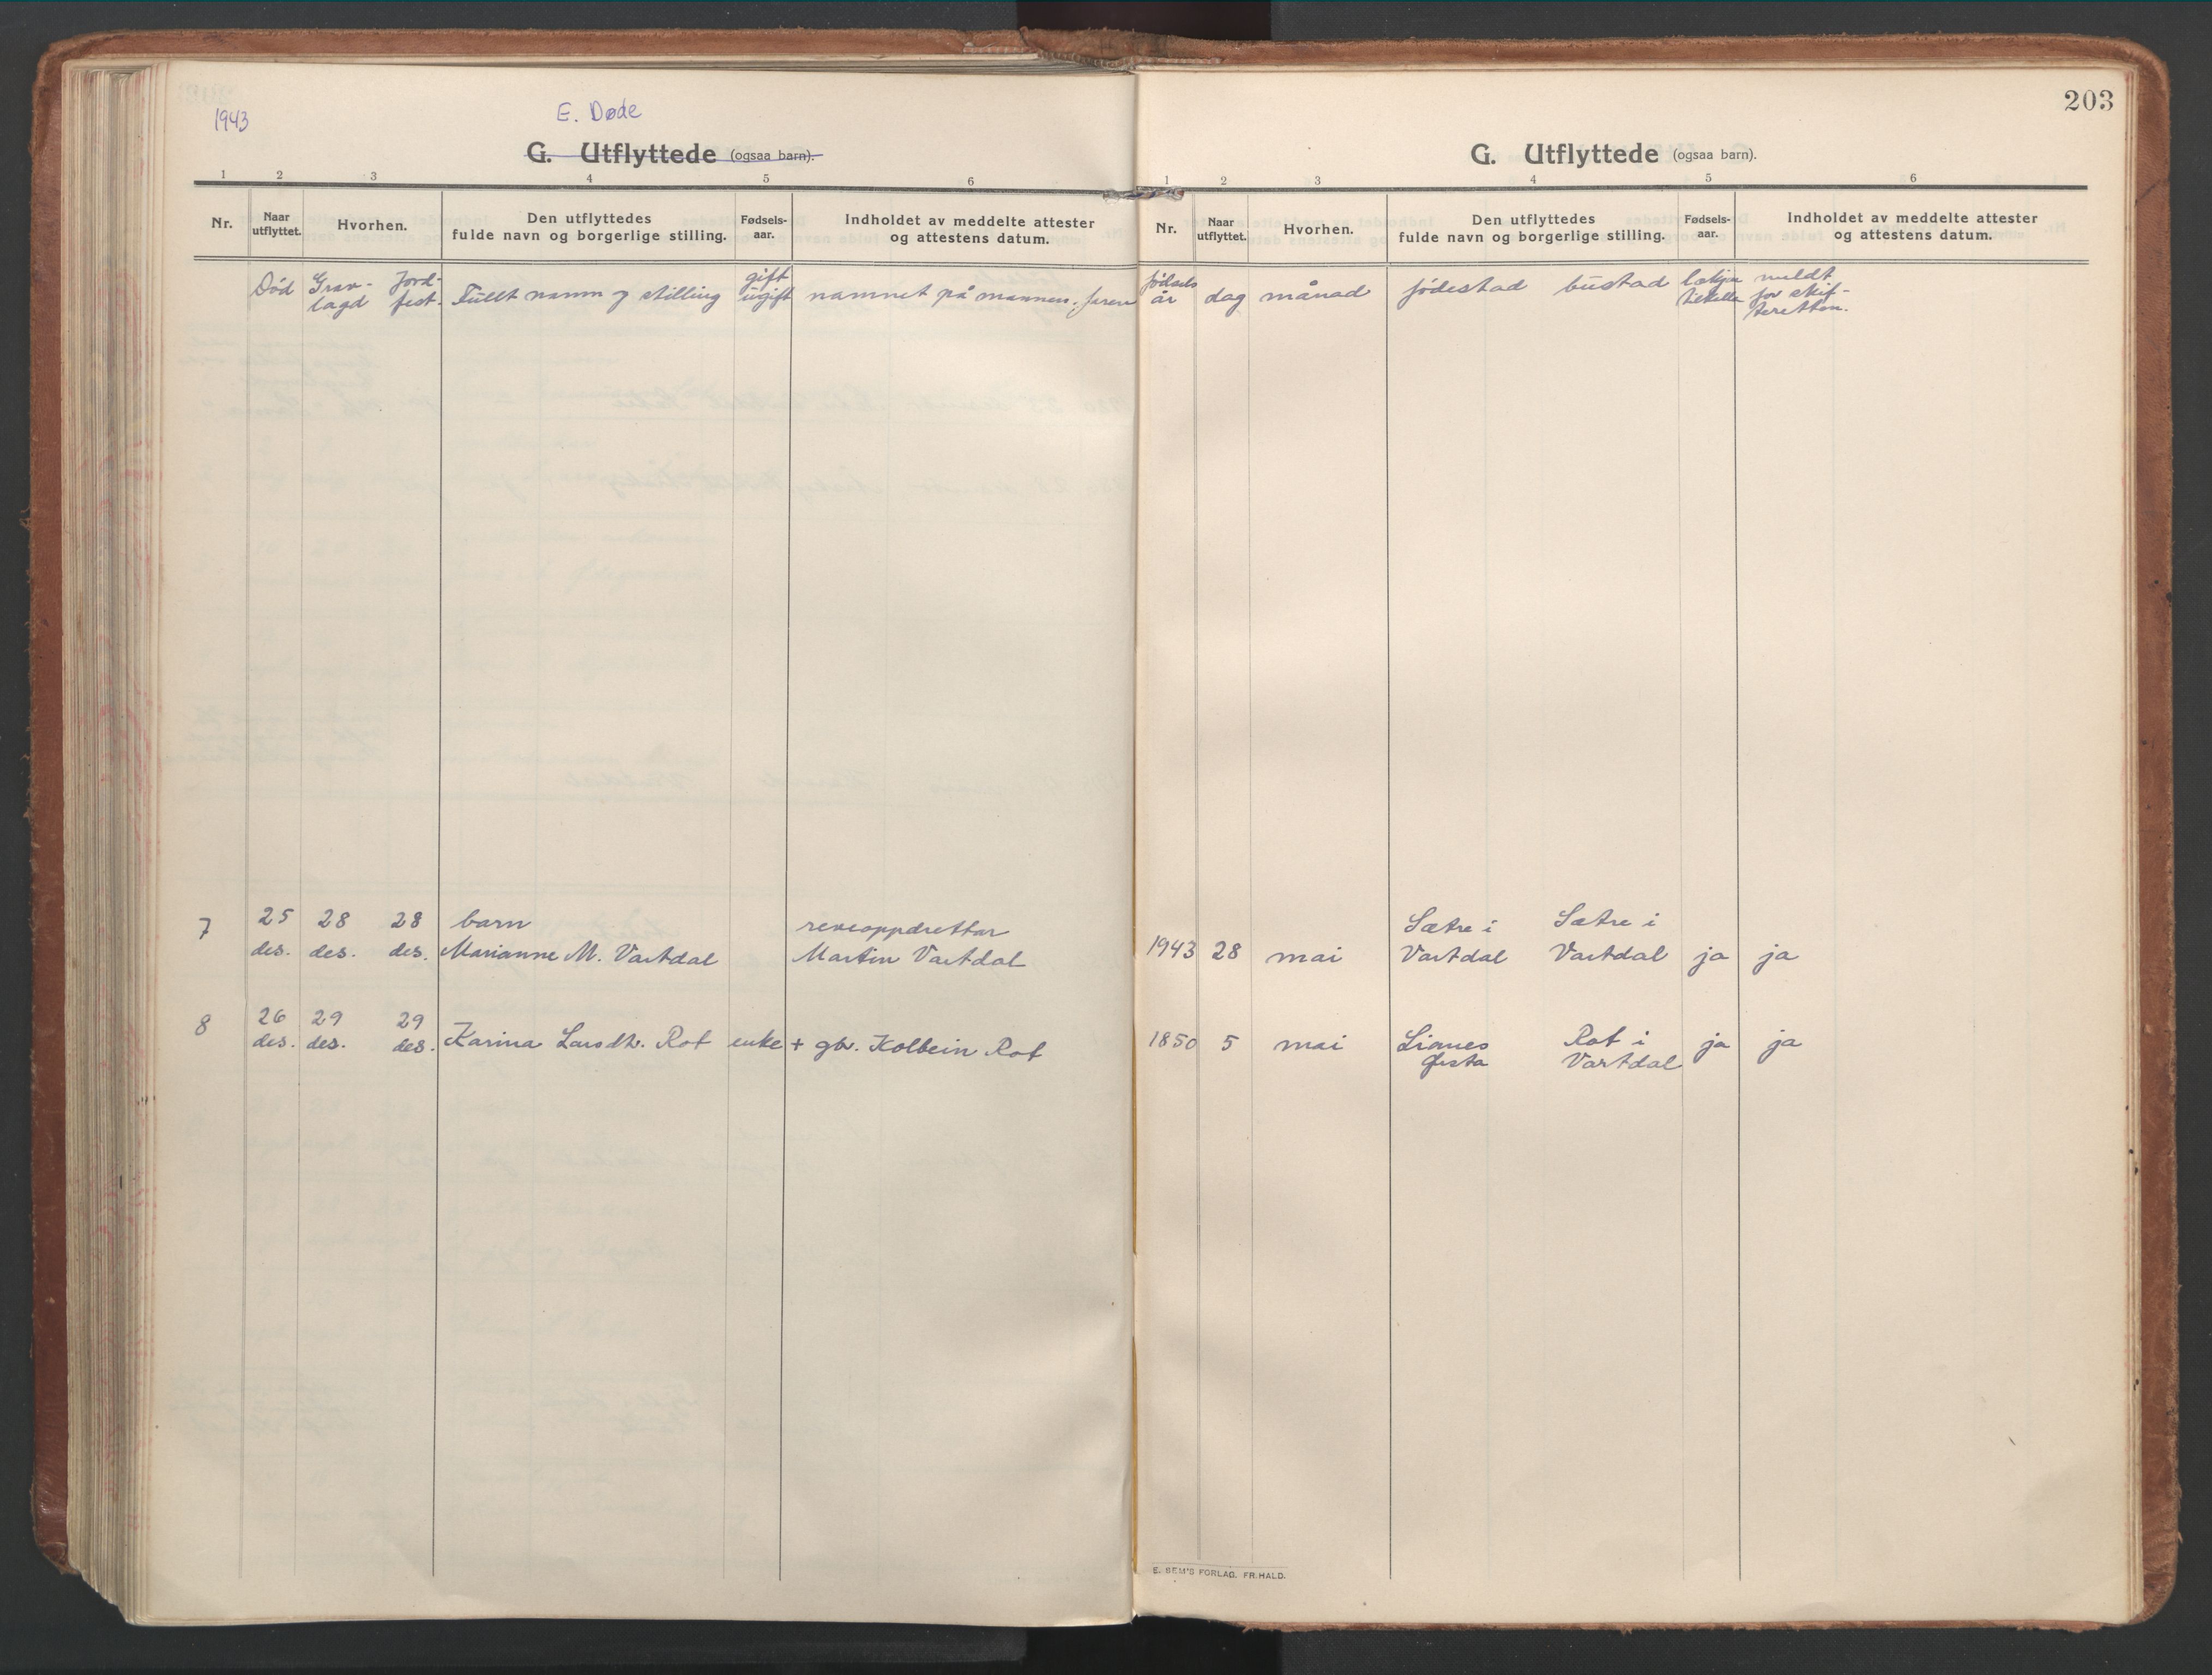 1943
E. Døde
G. Utflyttede (ogsaa barn).
1 2 3 4 5 6
Nr.
Naar utflyttet.
Hvorhen.
Den utflyttedes
fulde navn og borgerlige stilling.
Fødsels-
aar.
Indholdet av meddelte attester
og attestens datum.
Død
Grav-
lagd
Jord-
fest.
Fullt namn og stilling
gift
ugift
namnet på mannen, faren
7
25
des.
28
des.
28
des.
barn
Marianne M. Vartdal
reveoppdrettar
Martin Vartdal
8
26
des.
29
des.
29
des.
Karina Larsdtr. Rot enke + gbr. Kolbein Rot
203
G. Utflyttede (ogsaa barn).
1 2 3 4 5 6
Nr.
Naar
utflyttet.
Hvorhen.
Den utflyttedes
fulde navn og borgerlige stilling.
Fødsels-
aar.
Indholdet av meddelte attester
og attestens datum.
fødsels
år
dag
månad
fødestad
bustad
lækjar
meldt
for skif-
teretten.
1943 28 mai
Sætre i
Vartdal
Sætre i
Vartdal
ja ja
1850 5 mai
Ørsta
Rot i
Vartdal
ja ja
E. SEM'S FORLAG. FR.HALD.